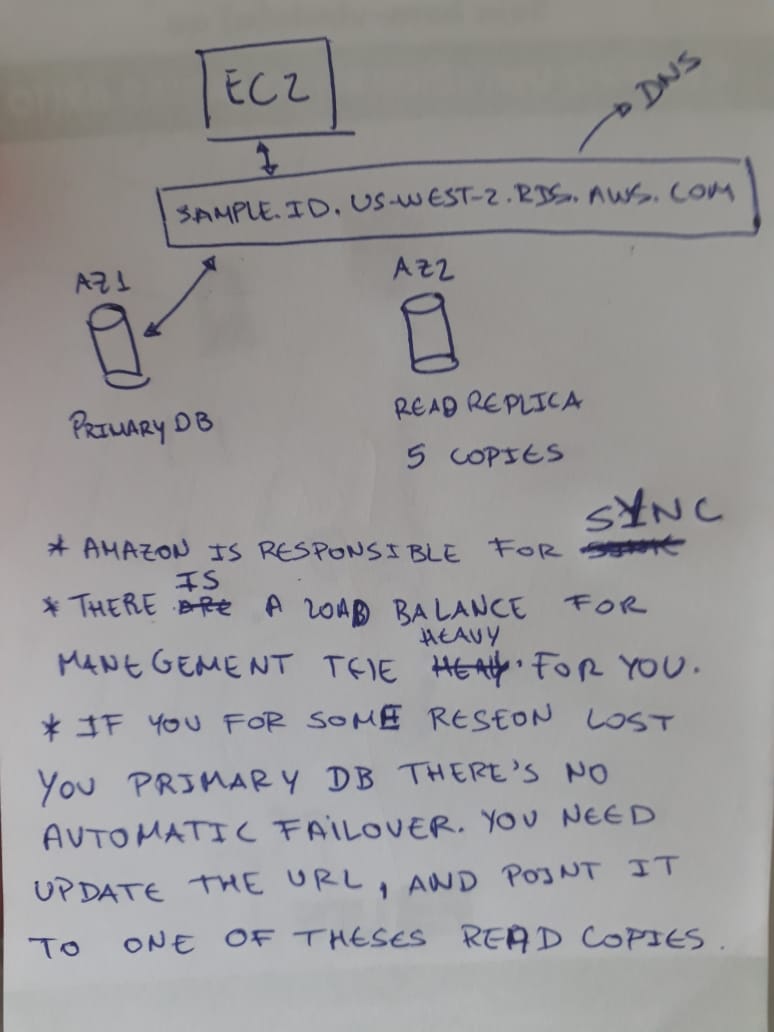 EC2
DNS
SAMPLE.ID.US-WEST-2.RDS.AWS.COM
AZ1
AZ2
PRIMARY DB
READ REPLICA
5 COPIES
* AMAZON IS RESPONSIBLE FOR SYNC
* THERE IS A LOAD BALANCE FOR
MANEGEMENT THE HEAVY. FOR YOU.
* IF YOU FOR SOME RESEON LOST
YOU PRIMARY DB THERE'S NO
AUTOMATIC FAILOVER. YOU NEED
UPDATE THE URL, AND POINT IT
TO ONE OF THESES READ COPIES.